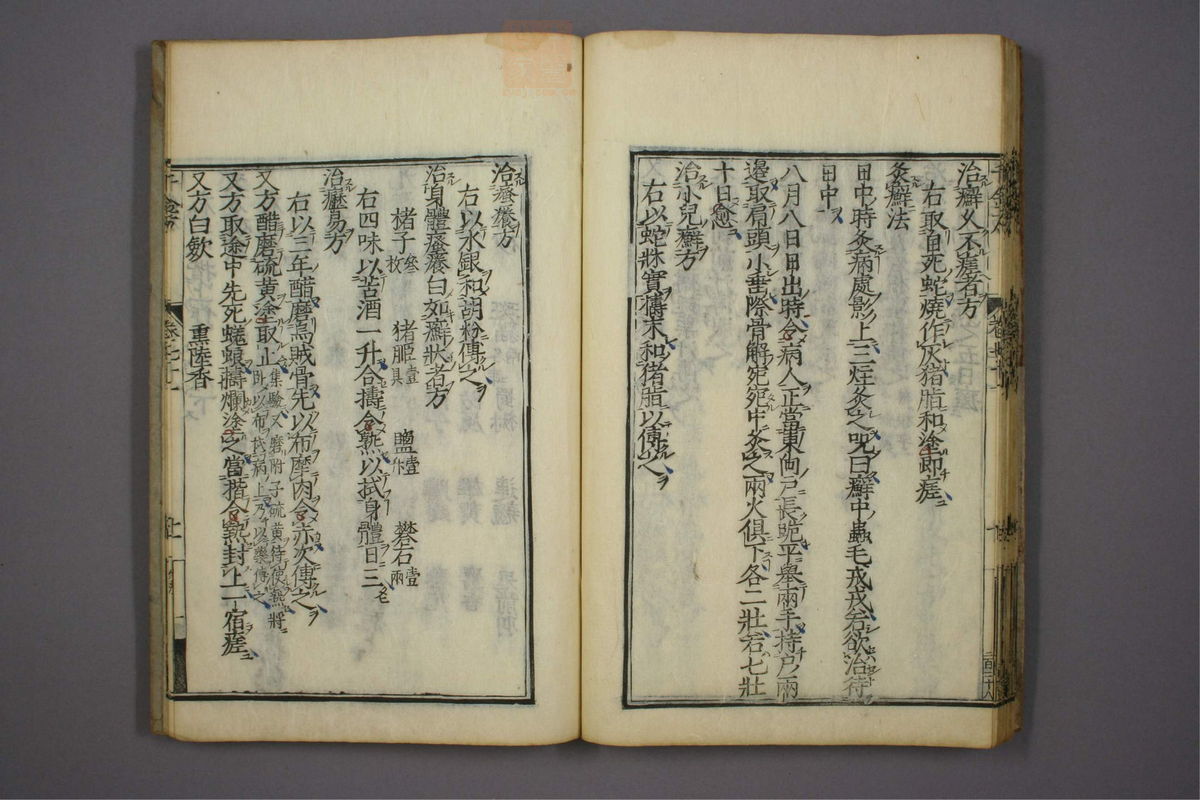 治癬久不瘥者方
右取自死蛇燒作灰猪脂和塗即瘥
灸癬法
日中時灸病處影上三炷灸之呪曰癬中蟲毛戎戎若欲治待
日中
八月八日日出時令病人正當東向戶長跪平舉兩手持戶兩
邊取肩頭小垂際骨解宛宛中灸之兩火俱下各二壯若七壯
十日愈
治小兒癬方
右以蛇牀實擣末和猪脂以傅之
治瘙癢方
右以水銀和胡粉傅之
治身體瘙癢白如癬狀者方
楮子叁枚 猪胵壹具 鹽壹升 礬石壹兩
右四味以苦酒一升合擣令熟以拭身體日三
治癧易方
右以三年醋磨烏賊骨先以布摩肉令赤次傅之
又方醋磨硫黃塗取止集驗又磨附子硫黃待使熟將卧以布拭病上乃以藥傅之
又方取途中先死蜣蜋擣爛塗之當揩令熱封上一宿瘥
又方白歛 熏陸香